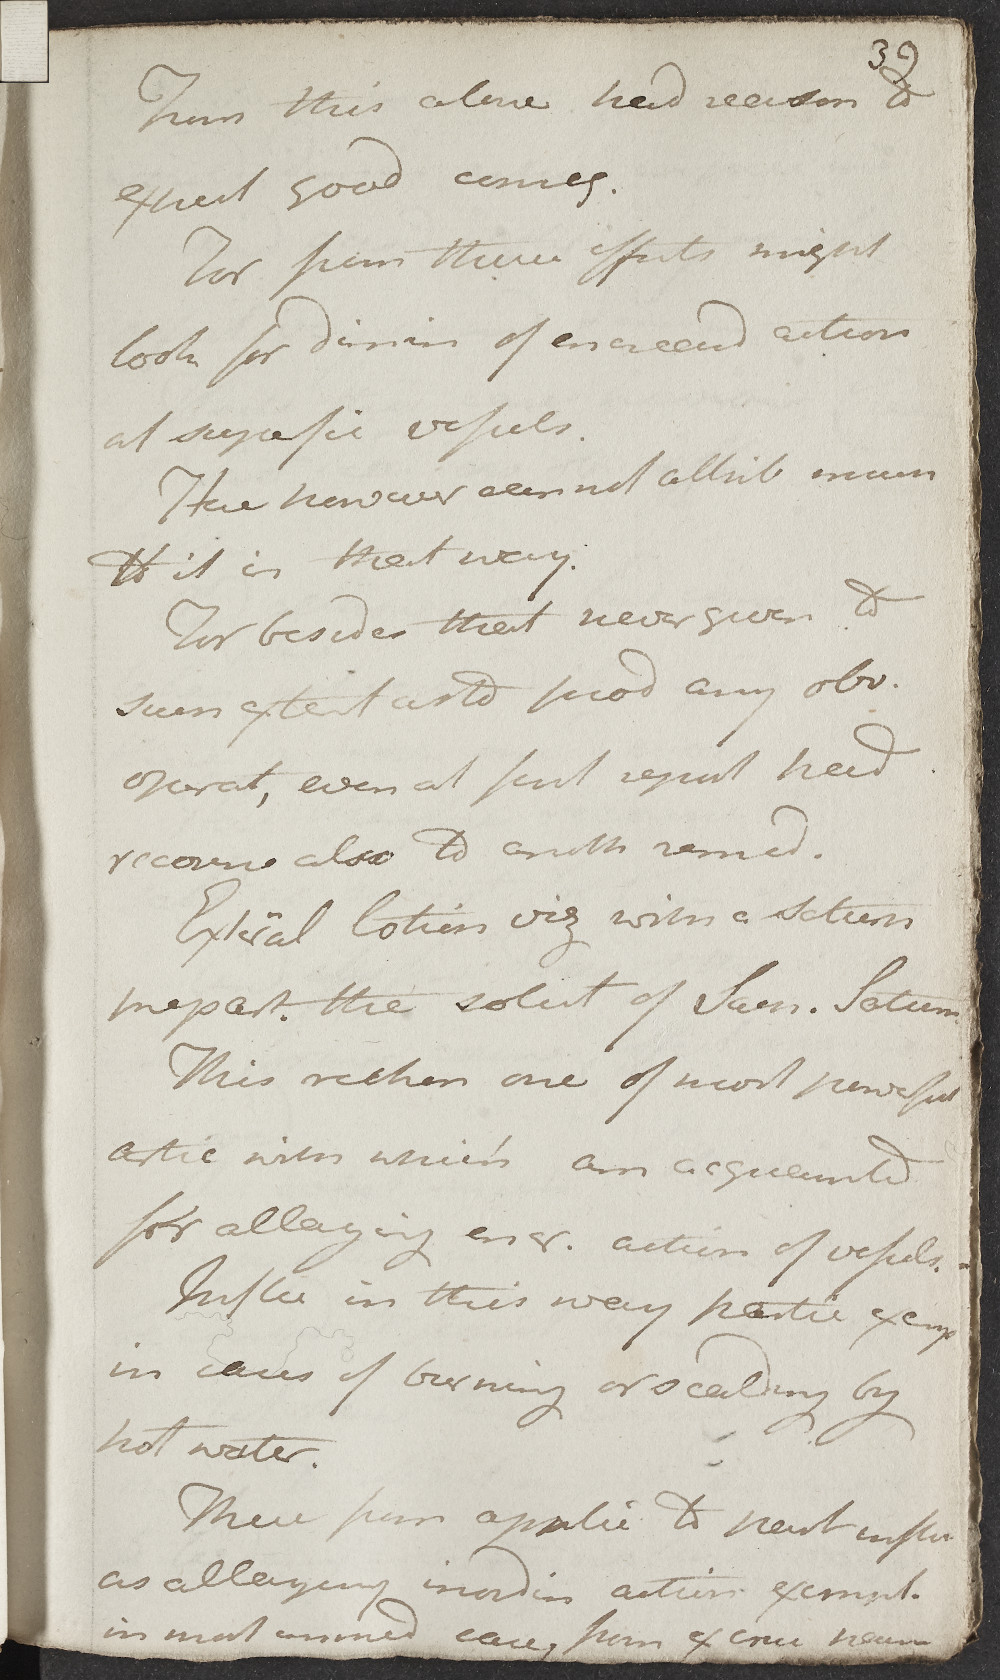 39
From this alone had reason to
expect good conseq.
For from these effects might
look for dimin of encreased action
at superfic vessels.
Here however cannot attrib
it in that way.
For besides that never given to
such extent as to prod any obv.
operat, even at first report had
recourse also to anoth remed.
Exteral lotion viz with a saturn
prepart. the solut of Sacc. Saturn
This reckon one of most powerful
artic with which am acquainted
for allaying encr. action of vessels.
Influ in this way partic exemp
in cases of burning or scalding by
hot water.
There from applic to part
as allaying inordin action exempt.
in most case, from